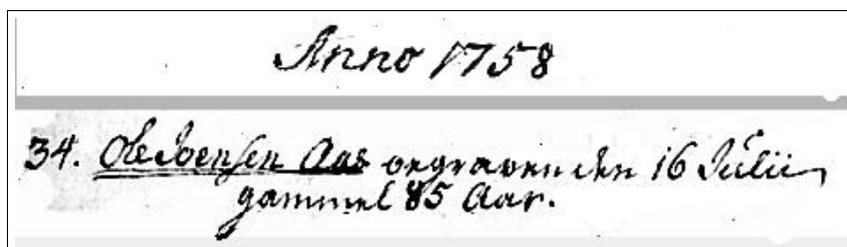 Anno 1758
34. Ole Joensen Aas begraven den 16 Julii
gammel 85 Aar.